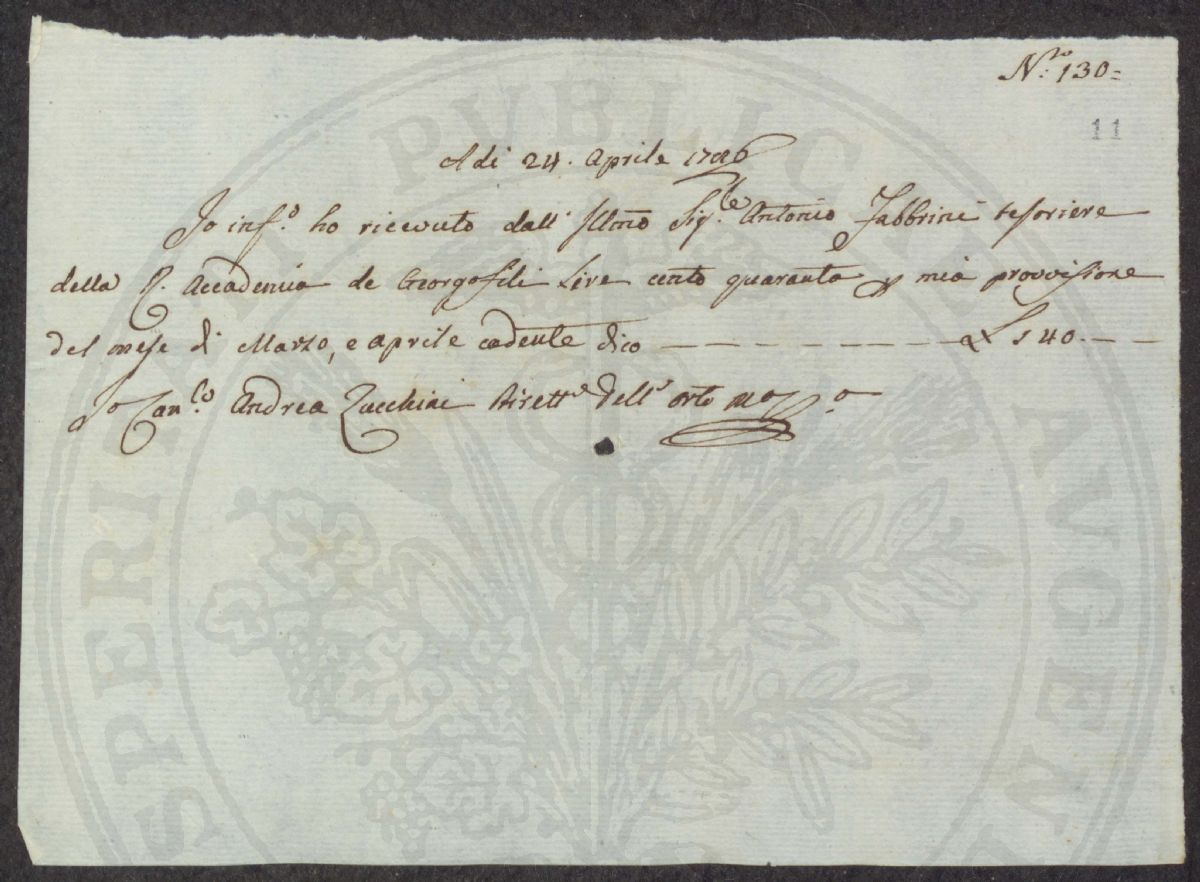 N.ro 130=
11
A di 24. Aprile 1786
Io inf.o ho ricevuto dall' Illmo Sig.le Antonio Fabbrini tesoriere
della R. Accademia de Georgofili Lire cento quaranta p mia provvisione
del mese di Marzo, e aprile cadente dico — — — — — — — £ 140. — —
Io Can.co Andrea Zucchini Dirett.e dell' orto mo po
PROSPERITATI PUBLICAE AUGENDAE